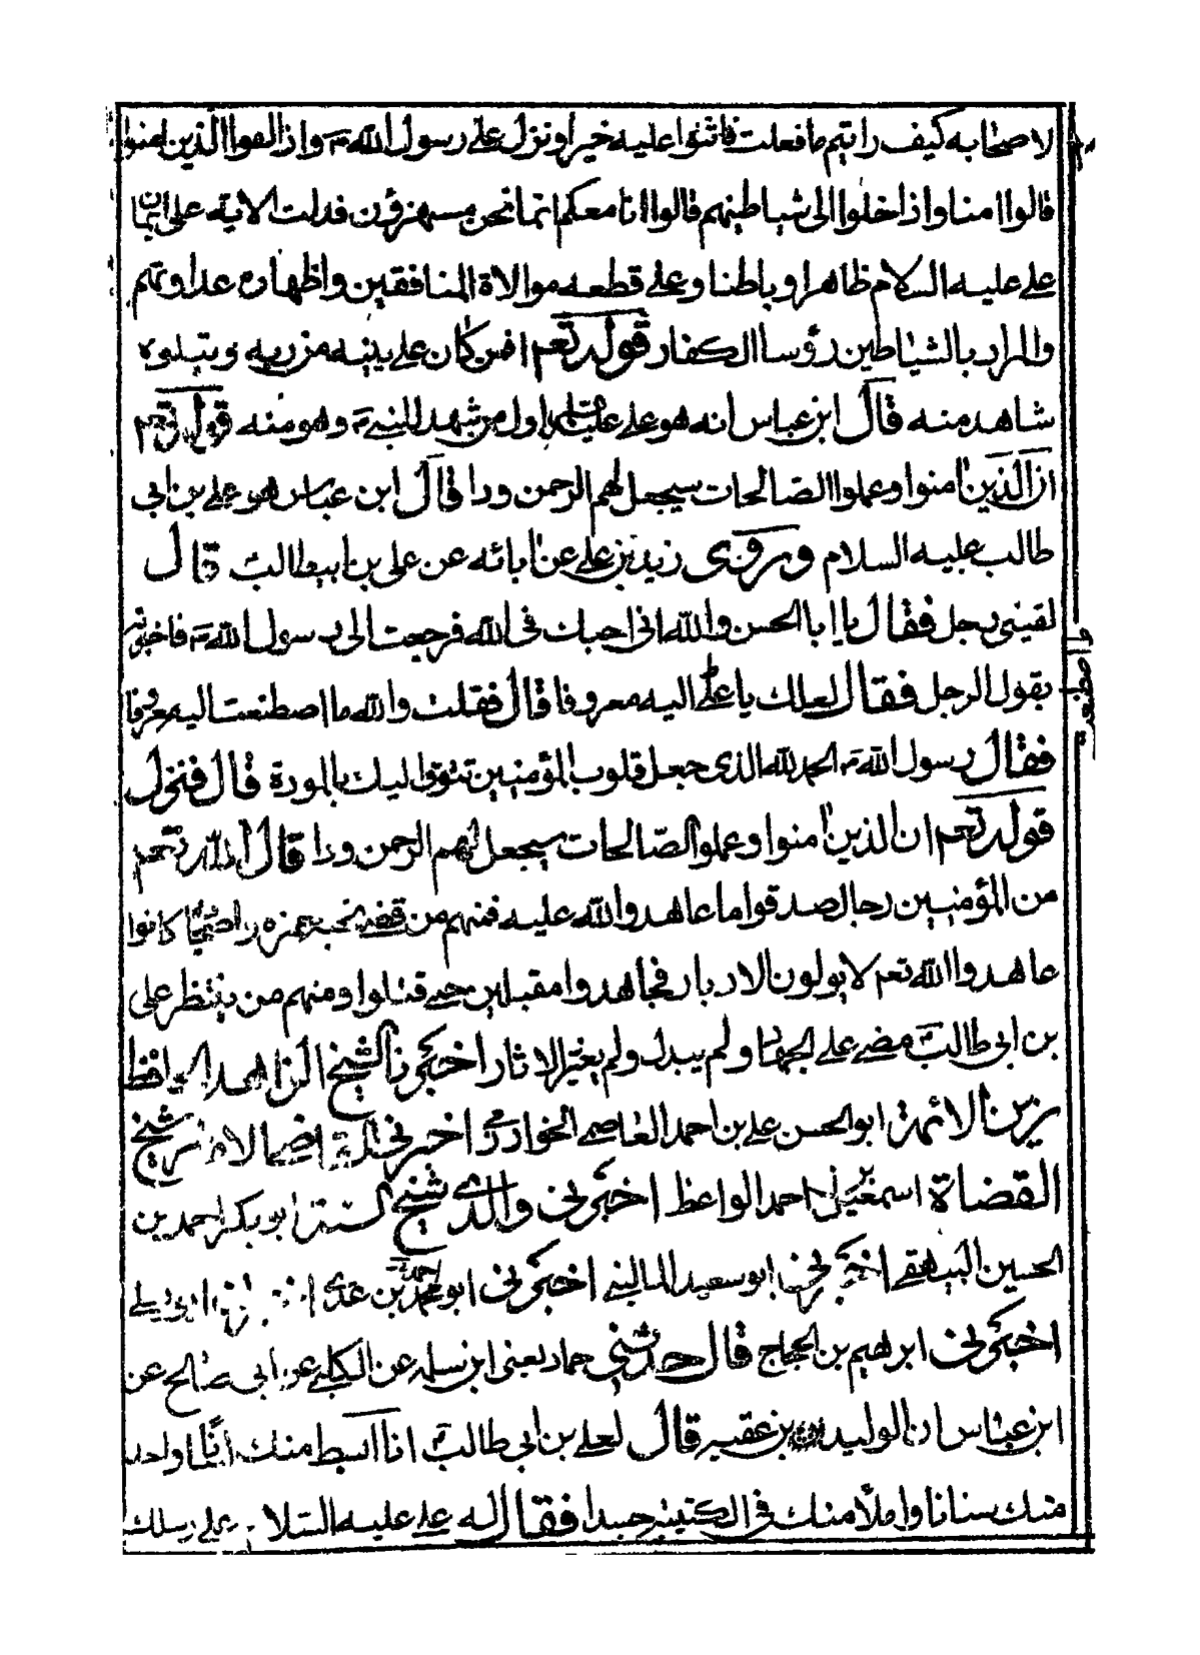 لاصحابه كيف رايتم ما فعلت فاثنوا عليه خيرا ونزل على رسول الله ص واذا لقوا الذين امنوا
قالوا امنا واذا خلوا الى شياطينهم قالوا انا معكم انما نحن مستهزؤن فدلت الاية على ايمان
على عليه السلام ظاهرا وباطنا وعلى قطعه موالاة المنافقين واظهاره عداوتهم
والمراد بالشياطين رؤسا الكفار قوله تعم افمن كان على بينه من ربه ويتلوه
شاهد منه قال ابن عباس انه هو على عليه السلم اول من شهد للنبى ص وهو منه قوله تعم
ان الذين امنوا وعملوا الصالحات سيجعل لهم الرحمن ودا قال ابن عباس هو على بن ابى
طالب عليه السلام وروى زيد بن على عن ابائه عن على بن ابيطالب قال
لقينى رجل فقال يا ابا الحسن والله انى احبك فى الله فرجعت الى رسول الله ص فاخبرته
بقول الرجل فقال لعلك يا على اليه معروفا قال فقلت والله ما اصطنعت اليه معروفا
اصطنعت
فقال رسول الله ص الحمد لله الذى جعل قلوب المؤمنين تتوق اليك بالمودة قال فنزل
قوله تعم ان الذين امنوا وعملوا الصالحات سيجعل لهم الرحمن ودا قال الله تعم
من المؤمنين رجال صدقوا ما عاهدوا الله عليه فمنهم من قضى نحبه حمزه واصحابه كانوا
عاهدوا الله تعم لا يولون الادبار فجاهدوا مقبلين حتى قتلوا ومنهم من ينتظر على
بن ابى طالب مضى على الجهاد ولم يبدل ولم يغير الاثار اخبرنا الشيخ الزاهد الحافظ
زين الائمة ابو الحسن على بن احمد العاصمى الخوارزمى اخبرنى القاضى الامام شيخ
القضاة اسمعيل بن احمد الواعظ اخبرنى والدى شيخ السنة ابو بكر احمد بن
الحسين البيهقى اخبرنى ابو سعيد المالينى اخبرنى ابو محمد احمد بن عدى ابو يعلى
اخبرنى ابرهيم بن الحجاج قال حدثنى حماد يعنى ابن سلمه عن الكلبى عن ابى صالح عن
ابن عباس ان الوليد بن عقبه قال لعلى بن ابى طالب انا ابسط منك لسانا واحد
منك سنانا واملأ منك فى الكتيبة جسدا فقال له على عليه السلام على رسلك